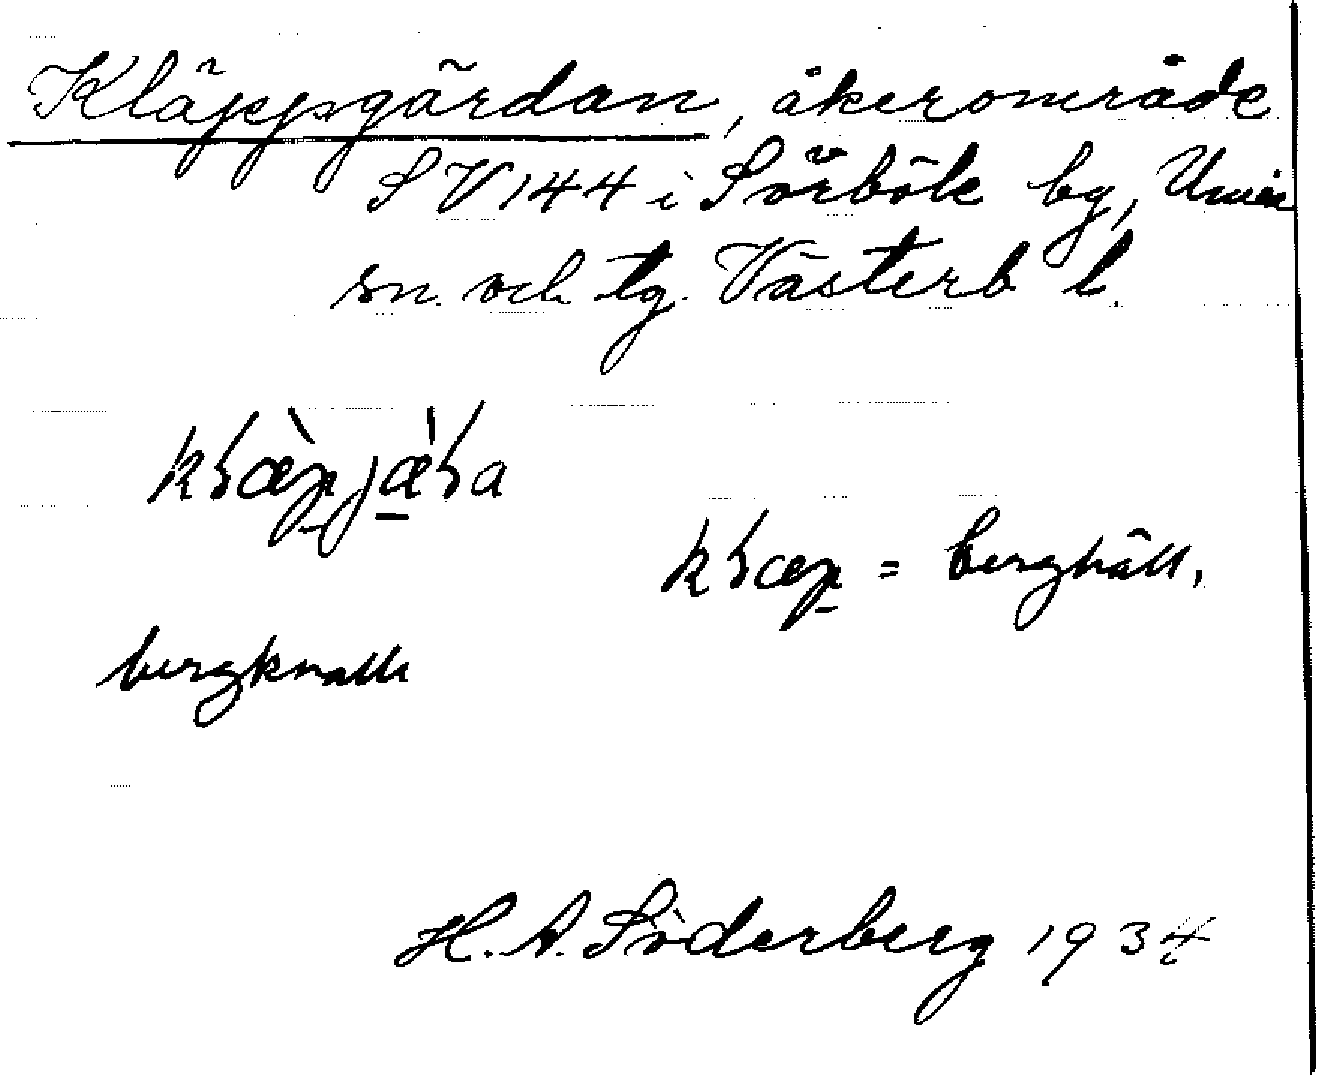 Kläppgärdan, åkerområde
SV 144 i Sörböle by, Umeå
sn. och tg. Västerb l.
kɽæ̀pjæ̀ɽa
kɽæp = berghäll,
bergknalle
H. A. Söderberg 1934